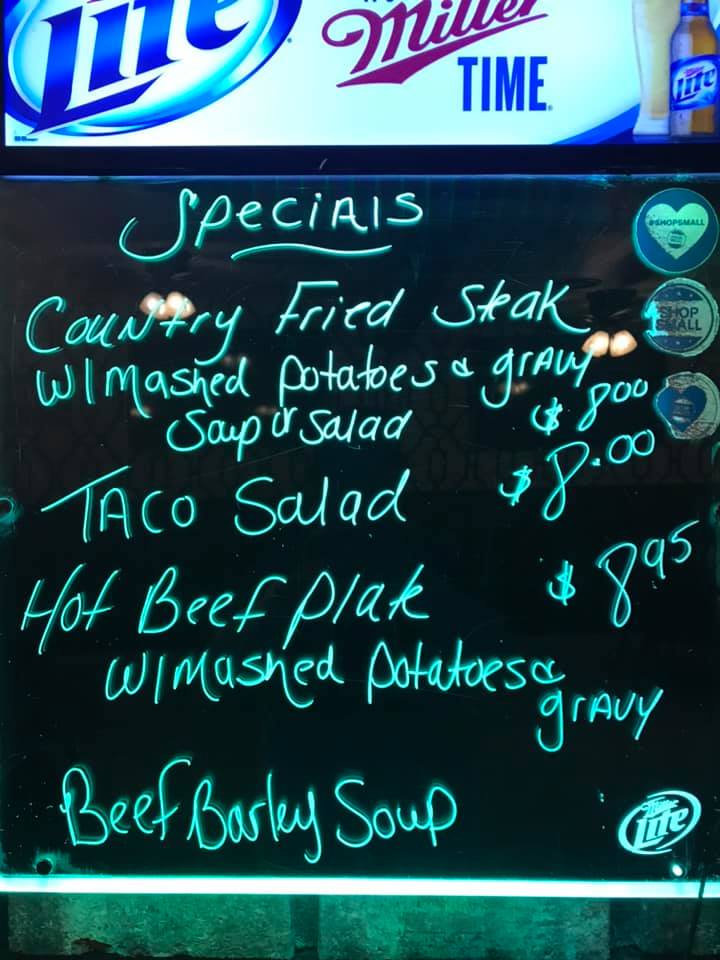 Lite
Miller
TIME
Lite
Specials
#SHOPSMALL
Country Fried Steak
SHOP
SMALL
W/Mashed potatoes & gravy
Soup or Salad $8.00
Taco Salad $8.00
Hot Beef Plate $8.95
W/Mashed Potatoes &
gravy
Beef Barley Soup
Miller
Lite